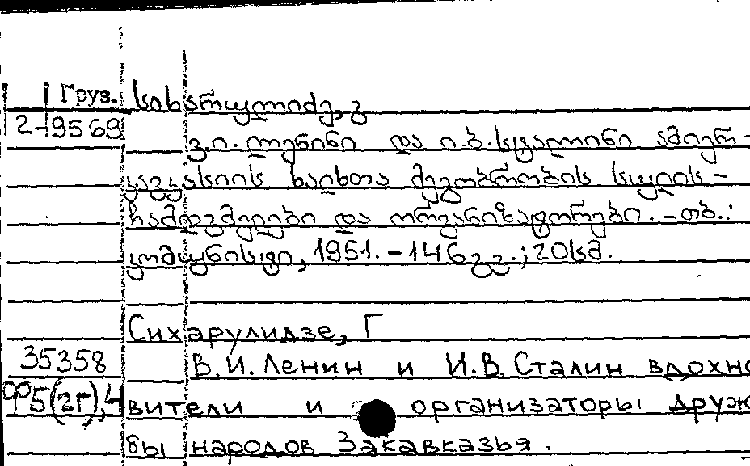 Груз. სიხარულიძე, გ
2-19569
ვ.ი. ლენინი და ი.ბ. სტალინი ამიერ-
კავკასიის ხალხთა მეგობრობის სულის-
ჩამდგმელები და ორგანიზატორები. - თბ.:
კომუნისტი, 1951. - 146 გვ.; 20 სმ.
Сихарулидзе, Г
35358 В.И. Ленин и И.В. Сталин вдохно
5(2Г),4 вители и организаторы друж
бы народов Закавказья.